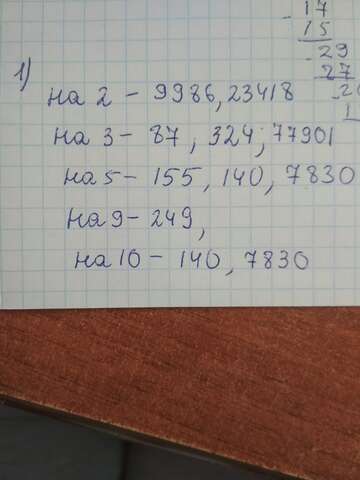 17
15
29
27
1)
на 2 - 9986, 23418
на 3 - 87, 324, 77901
на 5 - 155, 140, 7830
на 9 - 249,
на 10 - 140, 7830